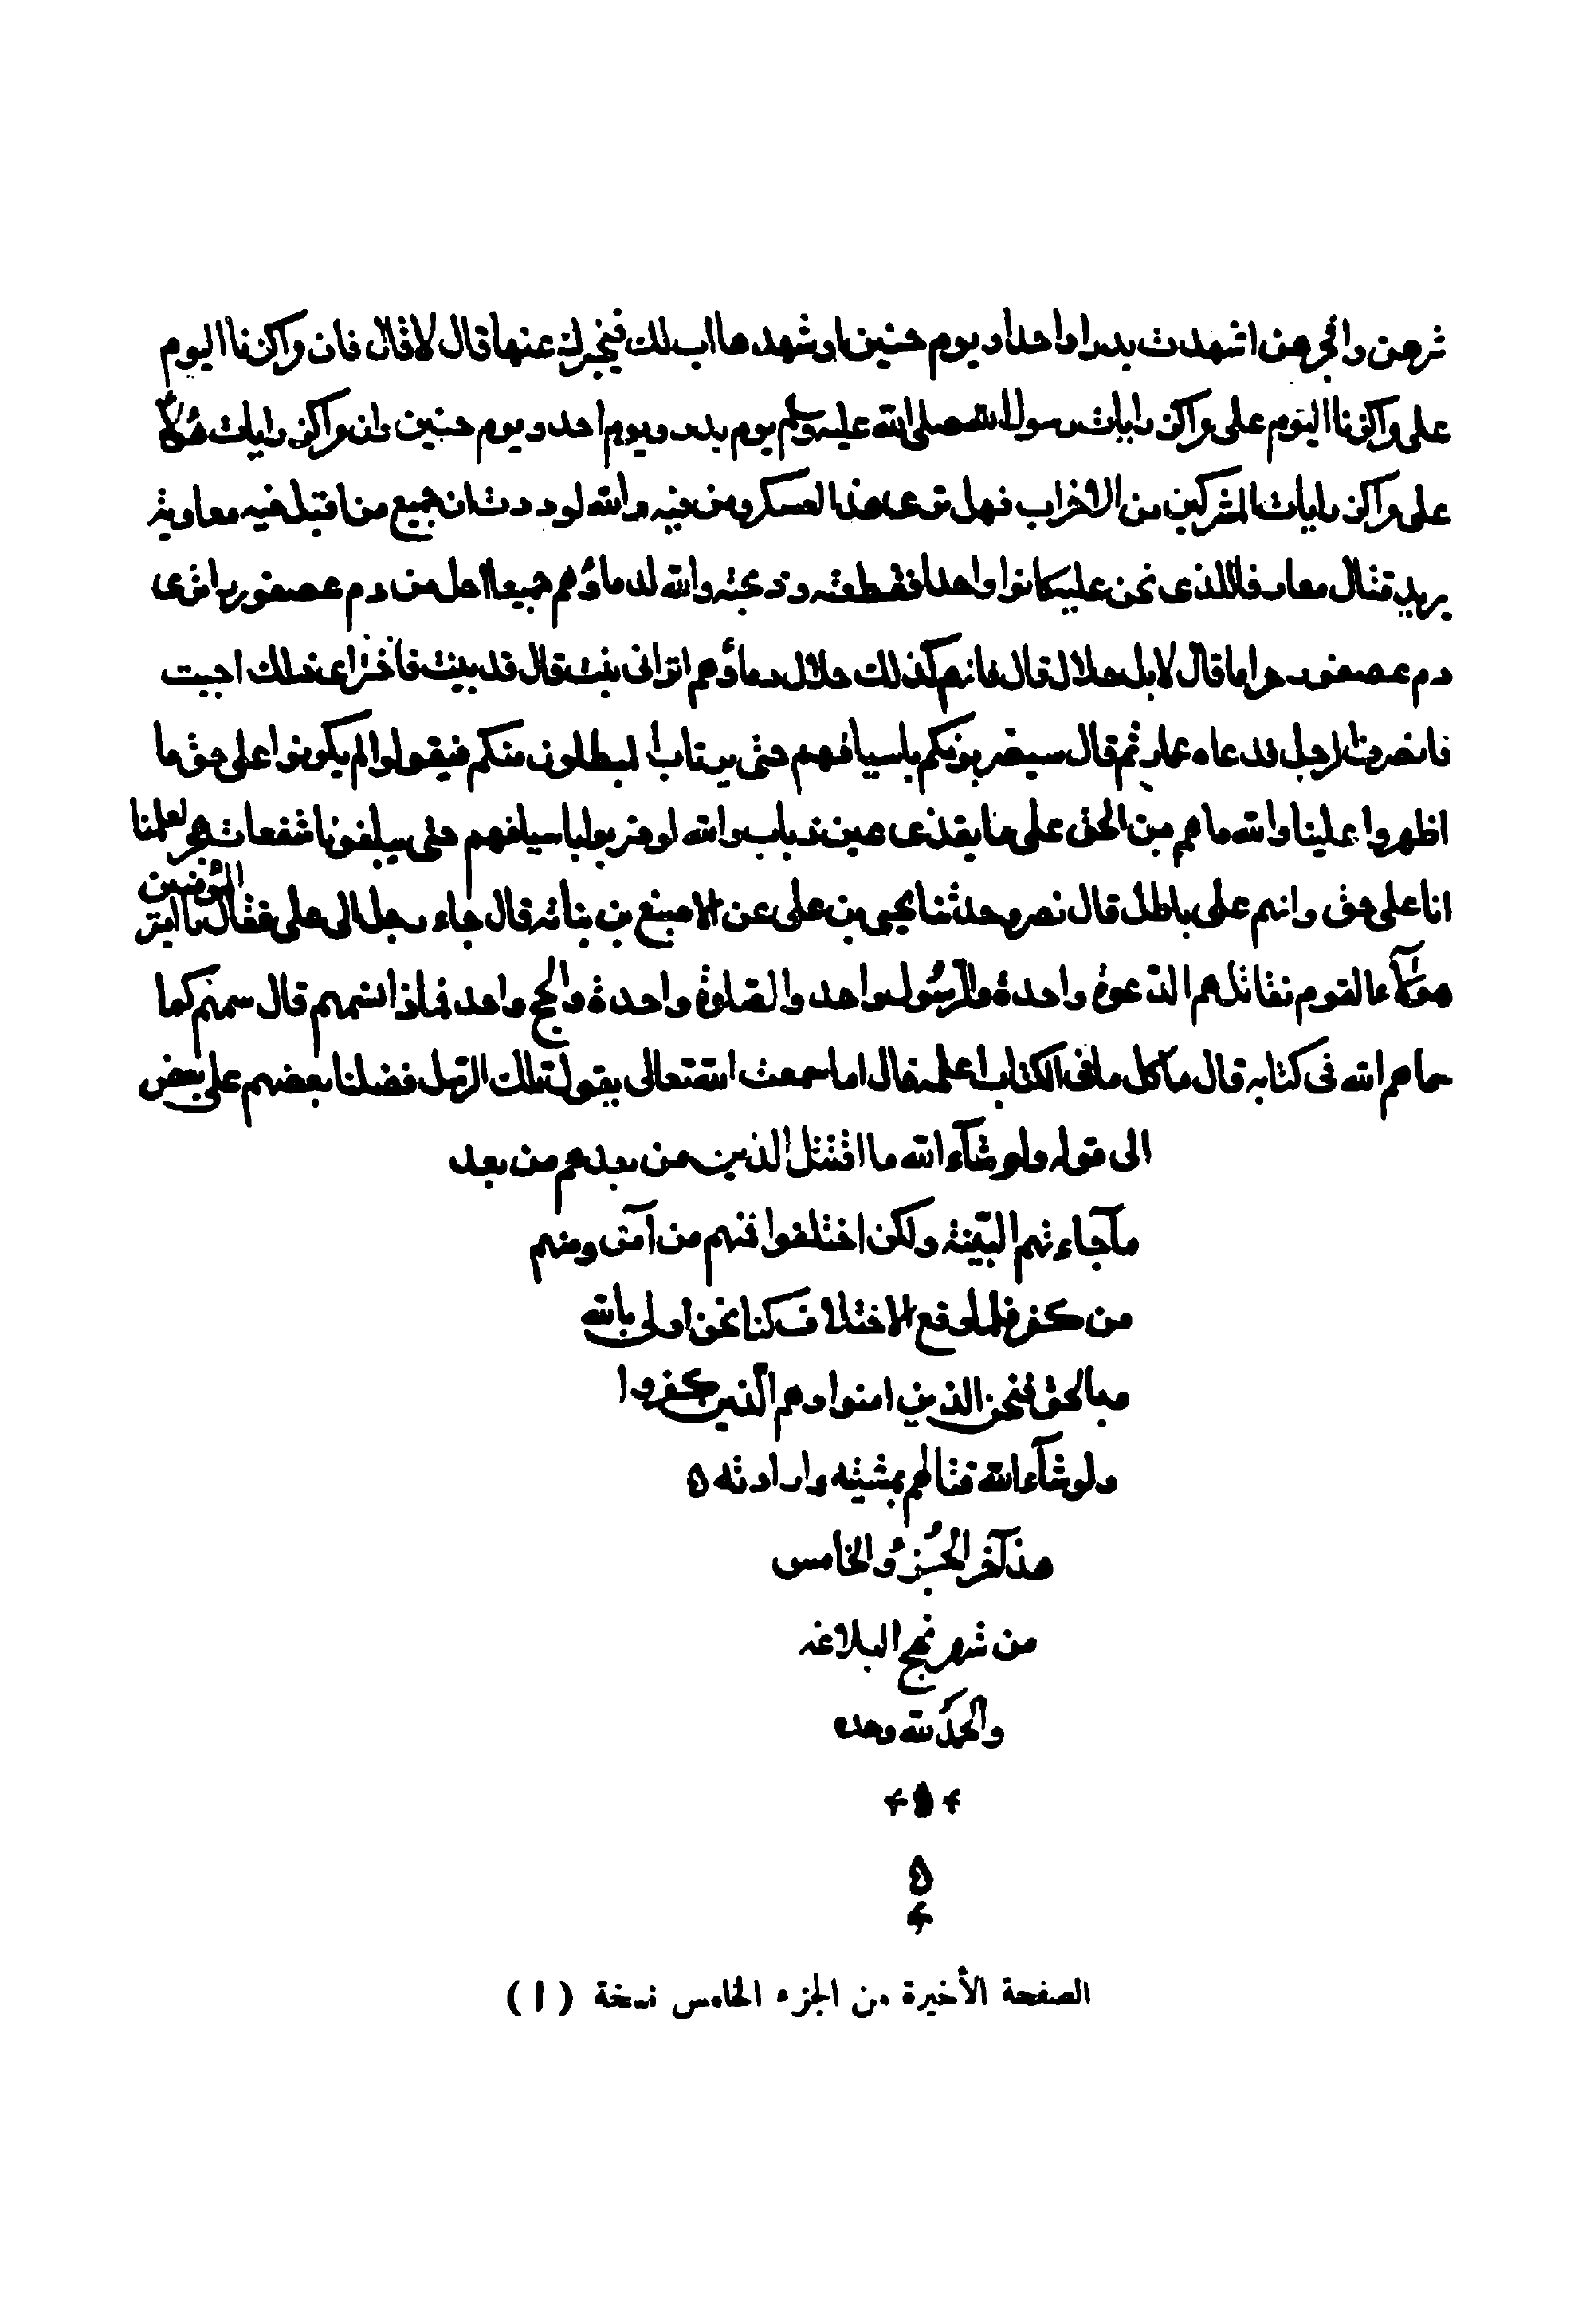 شرهن وافجرهن اشهدت بدرا واحدا ويوم حنين او شهدها اب لك فيخبرك عنها قال لا قال فان مراكزنا اليوم
على مراكزنا اليوم على مراكز رايات رسول الله صلى الله عليه وسلم يوم بدر ويوم احد ويوم حنين وان مراكز رايات هؤلاء
على مراكز رايات المشركين من الاحزاب فهل ترى هذا العسكر ومن فيه والله لوددت ان جميع من اقبل فيه معاوية
يريد قتال معار فا للذى نحن عليه كانوا واحدا فقطعته وذبحته والله لدماؤهم جميعا احل من دم عصفور اترى
دم عصفور حراما قال لا بل حلال قال فانهم كذلك حلال دماؤهم اترانى بينت قال قد بينت فاختر اى ذلك احببت
فانصرف الرجل فدعاه عمار ثم قال سيضربونكم باسيافهم حتى يرتاب المبطلون منكم فيقولوا لم يكونوا على حق ما
اظهروا علينا والله ما هم من الحق على ما يقذى عين ذباب والله لو ضربونا باسيافهم حتى يبلغونا شفعات هجر لعلمنا
انا على حق وانهم على باطل قال نصر وحدثنا يحيى بن على عن الاصبغ بن بناته قال جاء رجل الى على فقال يا امير المؤمنين
هؤلآء القوم نقاتلهم الدعوة واحدة والرسول واحد والصلوة واحدة والحج واحد فماذا نسمهم قال سمهم كما
سماهم الله فى كتابه قال ما كل ما فى الكتاب اعلمه قال اما سمعت الله تعالى يقول تلك الرسل فضلنا بعضهم على بعض
الى قوله ولو شآء الله ما اقتتل الذين من بعدهم من بعد
مآ جاءتهم البيّنة ولكن اختلفوا فمنهم من آمن ومنهم
من كفر فلما وقع الاختلاف كنا نحن اولى بالله
وبالحق فنحن الذين امنوا وهم الّذين كفروا
ولو شآء الله قتالهم بمشيته وارادته ۵
هذا آخر الجُزءُ الخامس
من شهر نهج البلاغه
والحمدُ لله وحده
الصفحة الأخيرة من الجزء الخامس نسخة (ا)